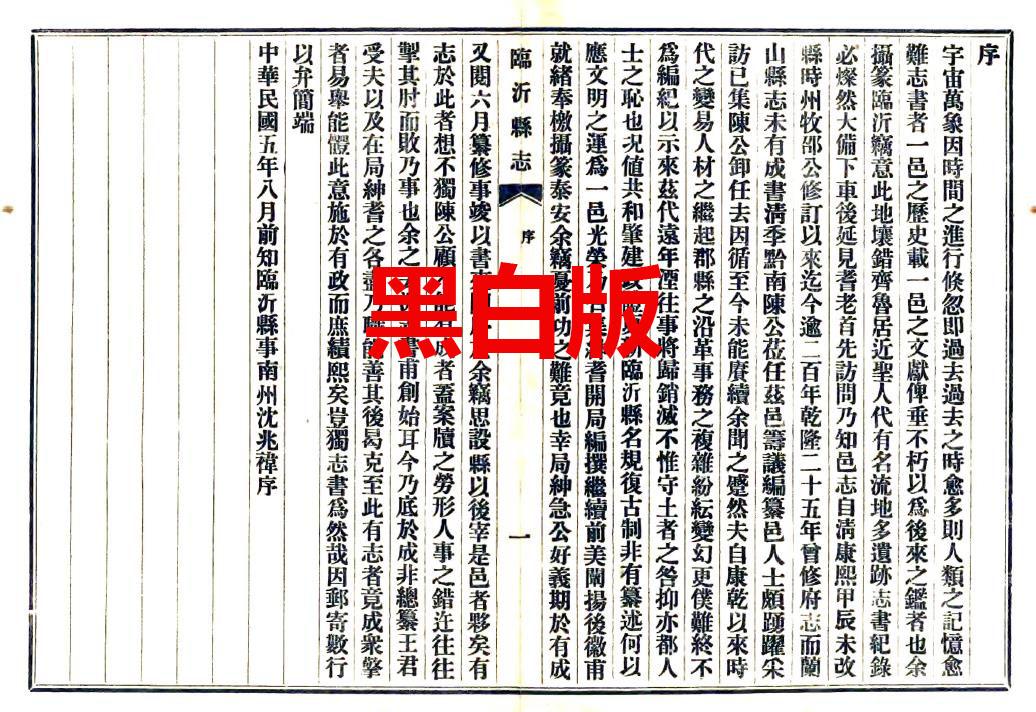 序
宇宙萬象因時間之進行倏忽即過去過去之時愈多則人類之記憶愈
難志書者一邑之歷史載一邑之文獻俾垂不朽以爲後來之鑑者也余
攝篆臨沂竊意此地壤錯齊魯居近聖人代有名流地多遺跡志書紀錄
必燦然大備下車後延見耆老首先訪問乃知邑志自清康熙甲辰未改
縣時州牧邵公修訂以來迄今逾二百年乾隆二十五年曾修府志而蘭
山縣志未有成書清季黔南陳公莅任茲邑籌議編纂邑人士頗踴躍采
訪已集陳公卸任去因循至今未能賡續余聞之蹙然夫自康乾以來時
代之變易人材之繼起郡縣之沿革事務之複雜紛紜變幻更僕難終不
爲編紀以示來茲代遠年湮往事將歸銷滅不惟守土者之咎抑亦都人
士之恥也况値共和肇建政臨沂縣名規復古制非有纂述何以
應文明之運爲一邑光榮耆開局編撰繼續前美闡揚後徽甫
就緒奉檄攝篆泰安余竊憂前功之難竟也幸局紳急公好義期於有成
臨沂縣志
序
一
又閱六月纂修事竣以書來余竊思設縣以後宰是邑者夥矣有
志於此者想不獨陳公顧成者蓋案牘之勞形人事之錯迕往往
掣其肘而敗乃事也余之書甫創始耳今乃底於成非總纂王君
受夫以及在局紳耆之各盡乃職能善其後曷克至此有志者竟成衆擎
者易舉能體此意施於有政而庶績熙矣豈獨志書爲然哉因郵寄數行
以弁簡端
中華民國五年八月前知臨沂縣事南州沈兆禕序
黑白版